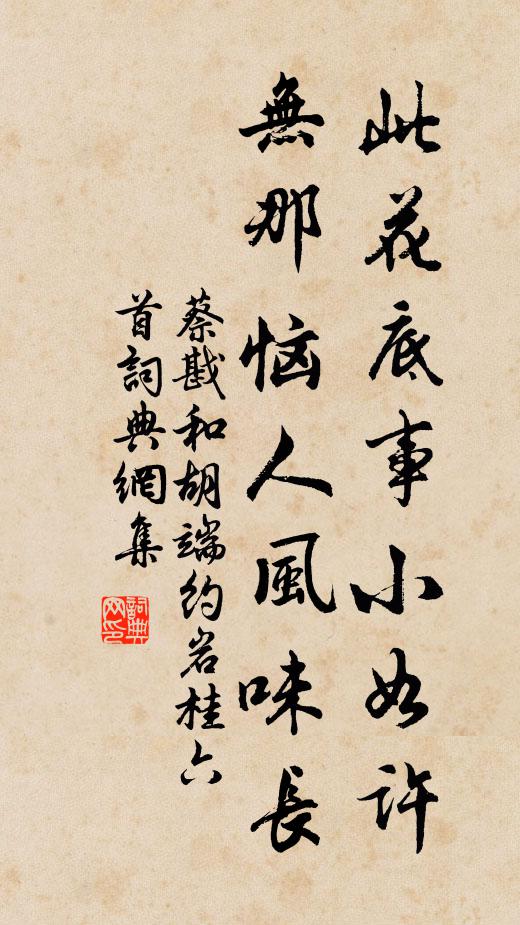 此花底事小如許
無那恼人風味長
蔡戡和胡端約岩桂六
首詞典網集
詞典
网印